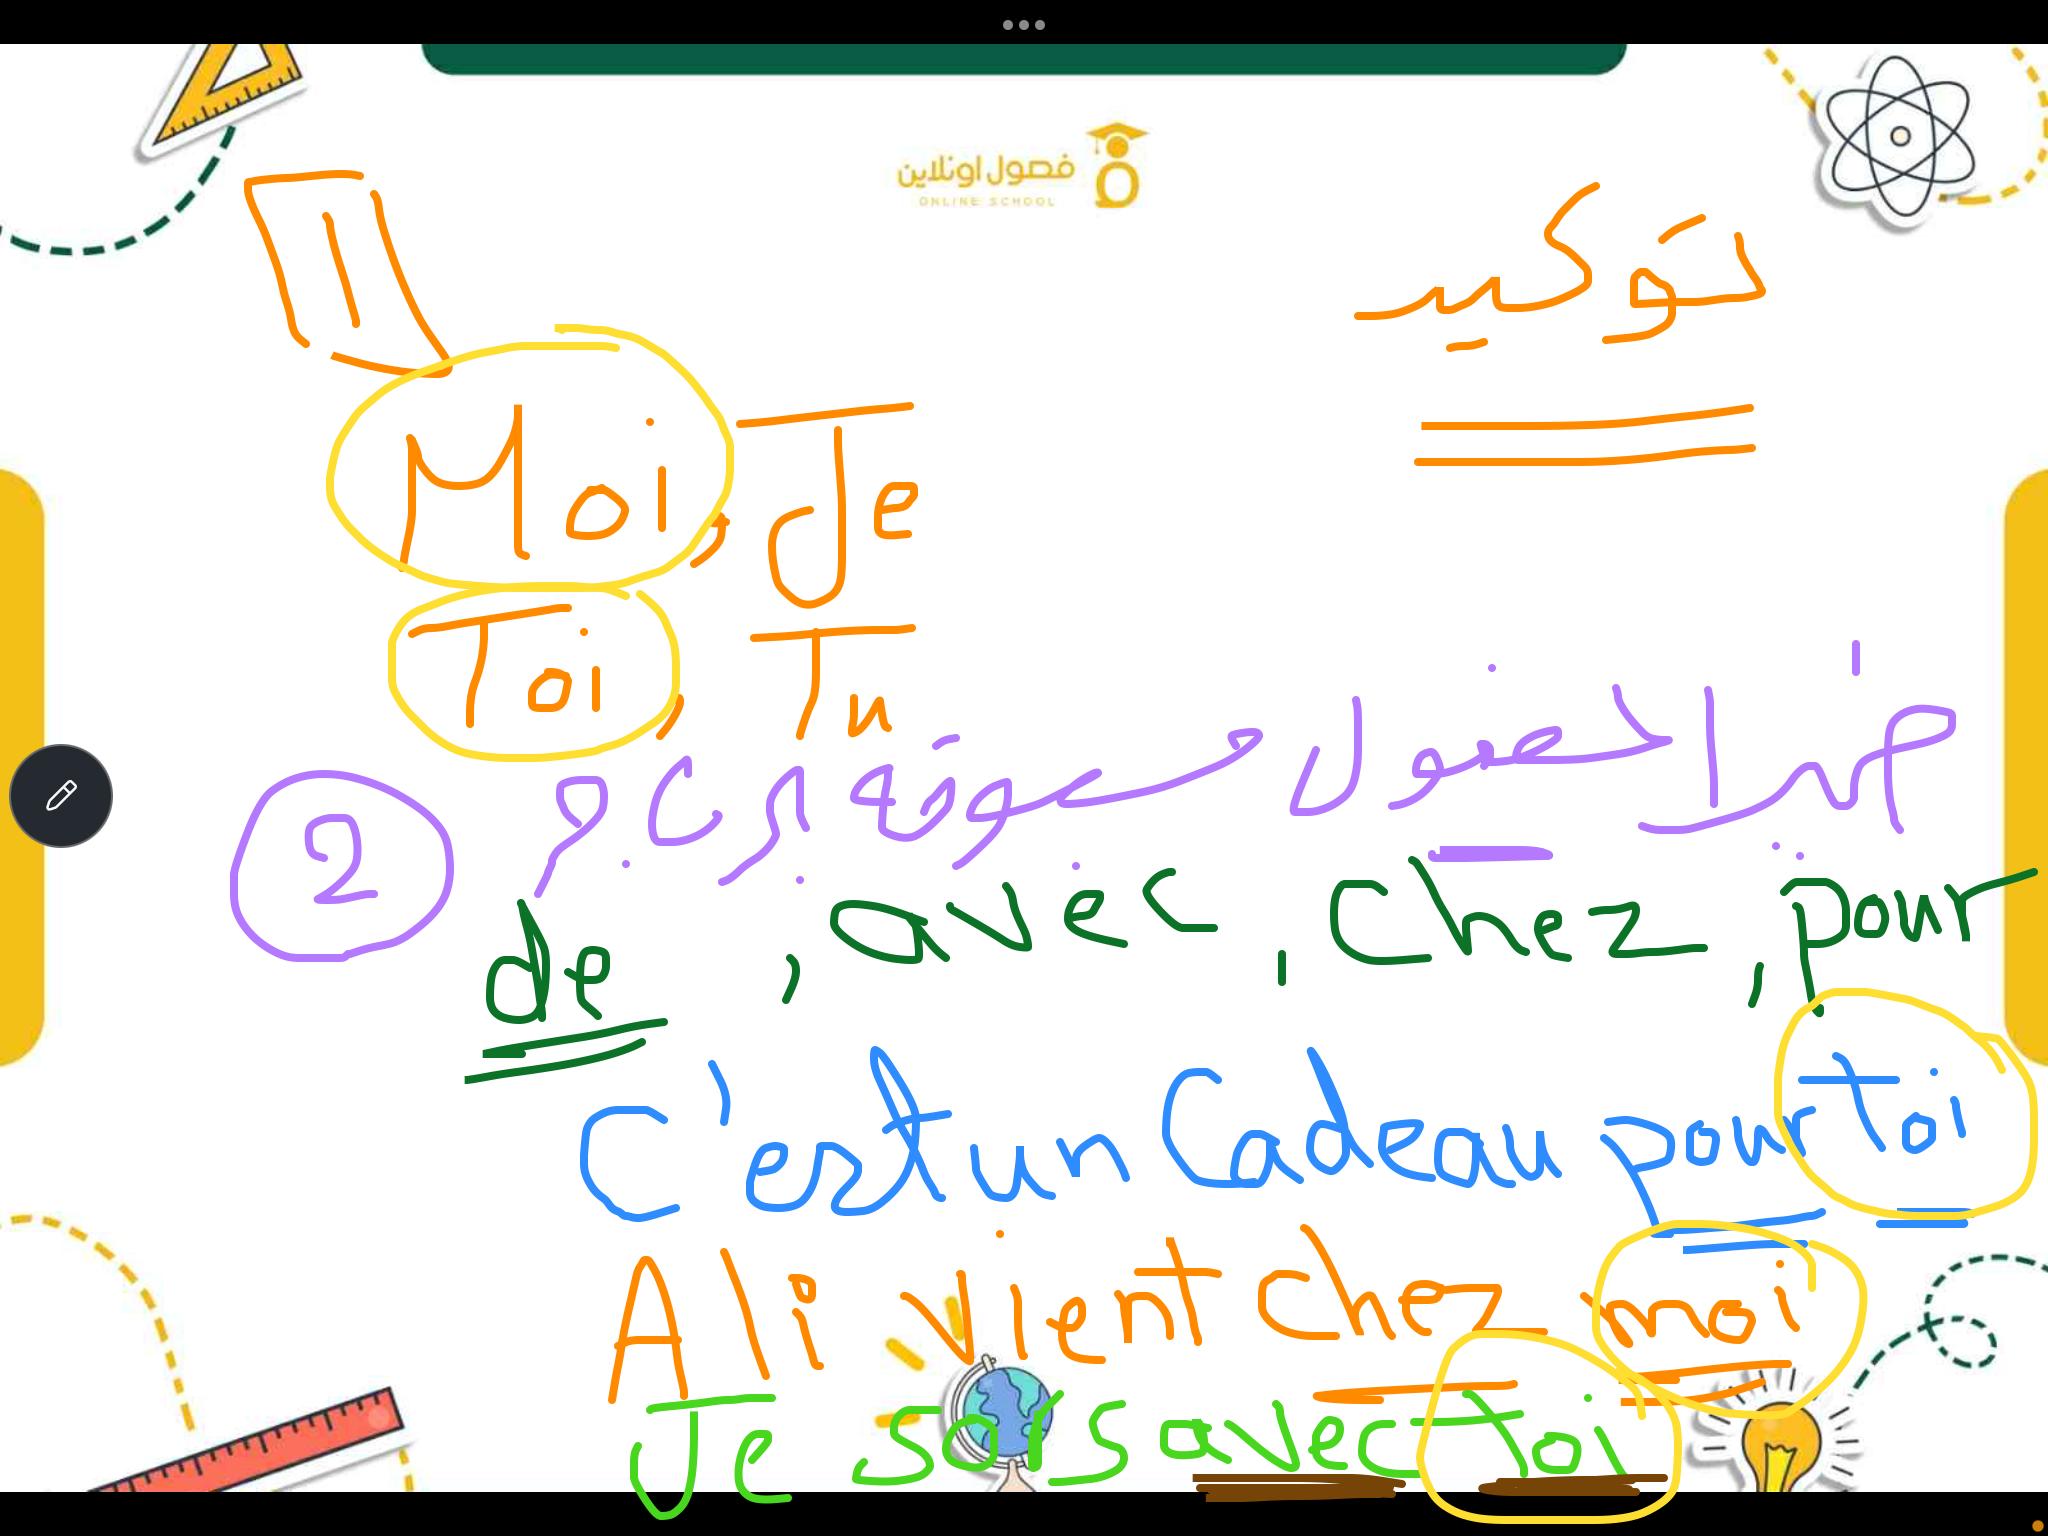 فصول اونلاين
ONLINE SCHOOL
1 توكيد
Moi, Je
Toi, Tu
2 ضمير المفعول مسبوقة بحرف جر
de, avec, chez, pour
C'est un Cadeau pour toi
Ali vient chez moi
Je sors avec toi